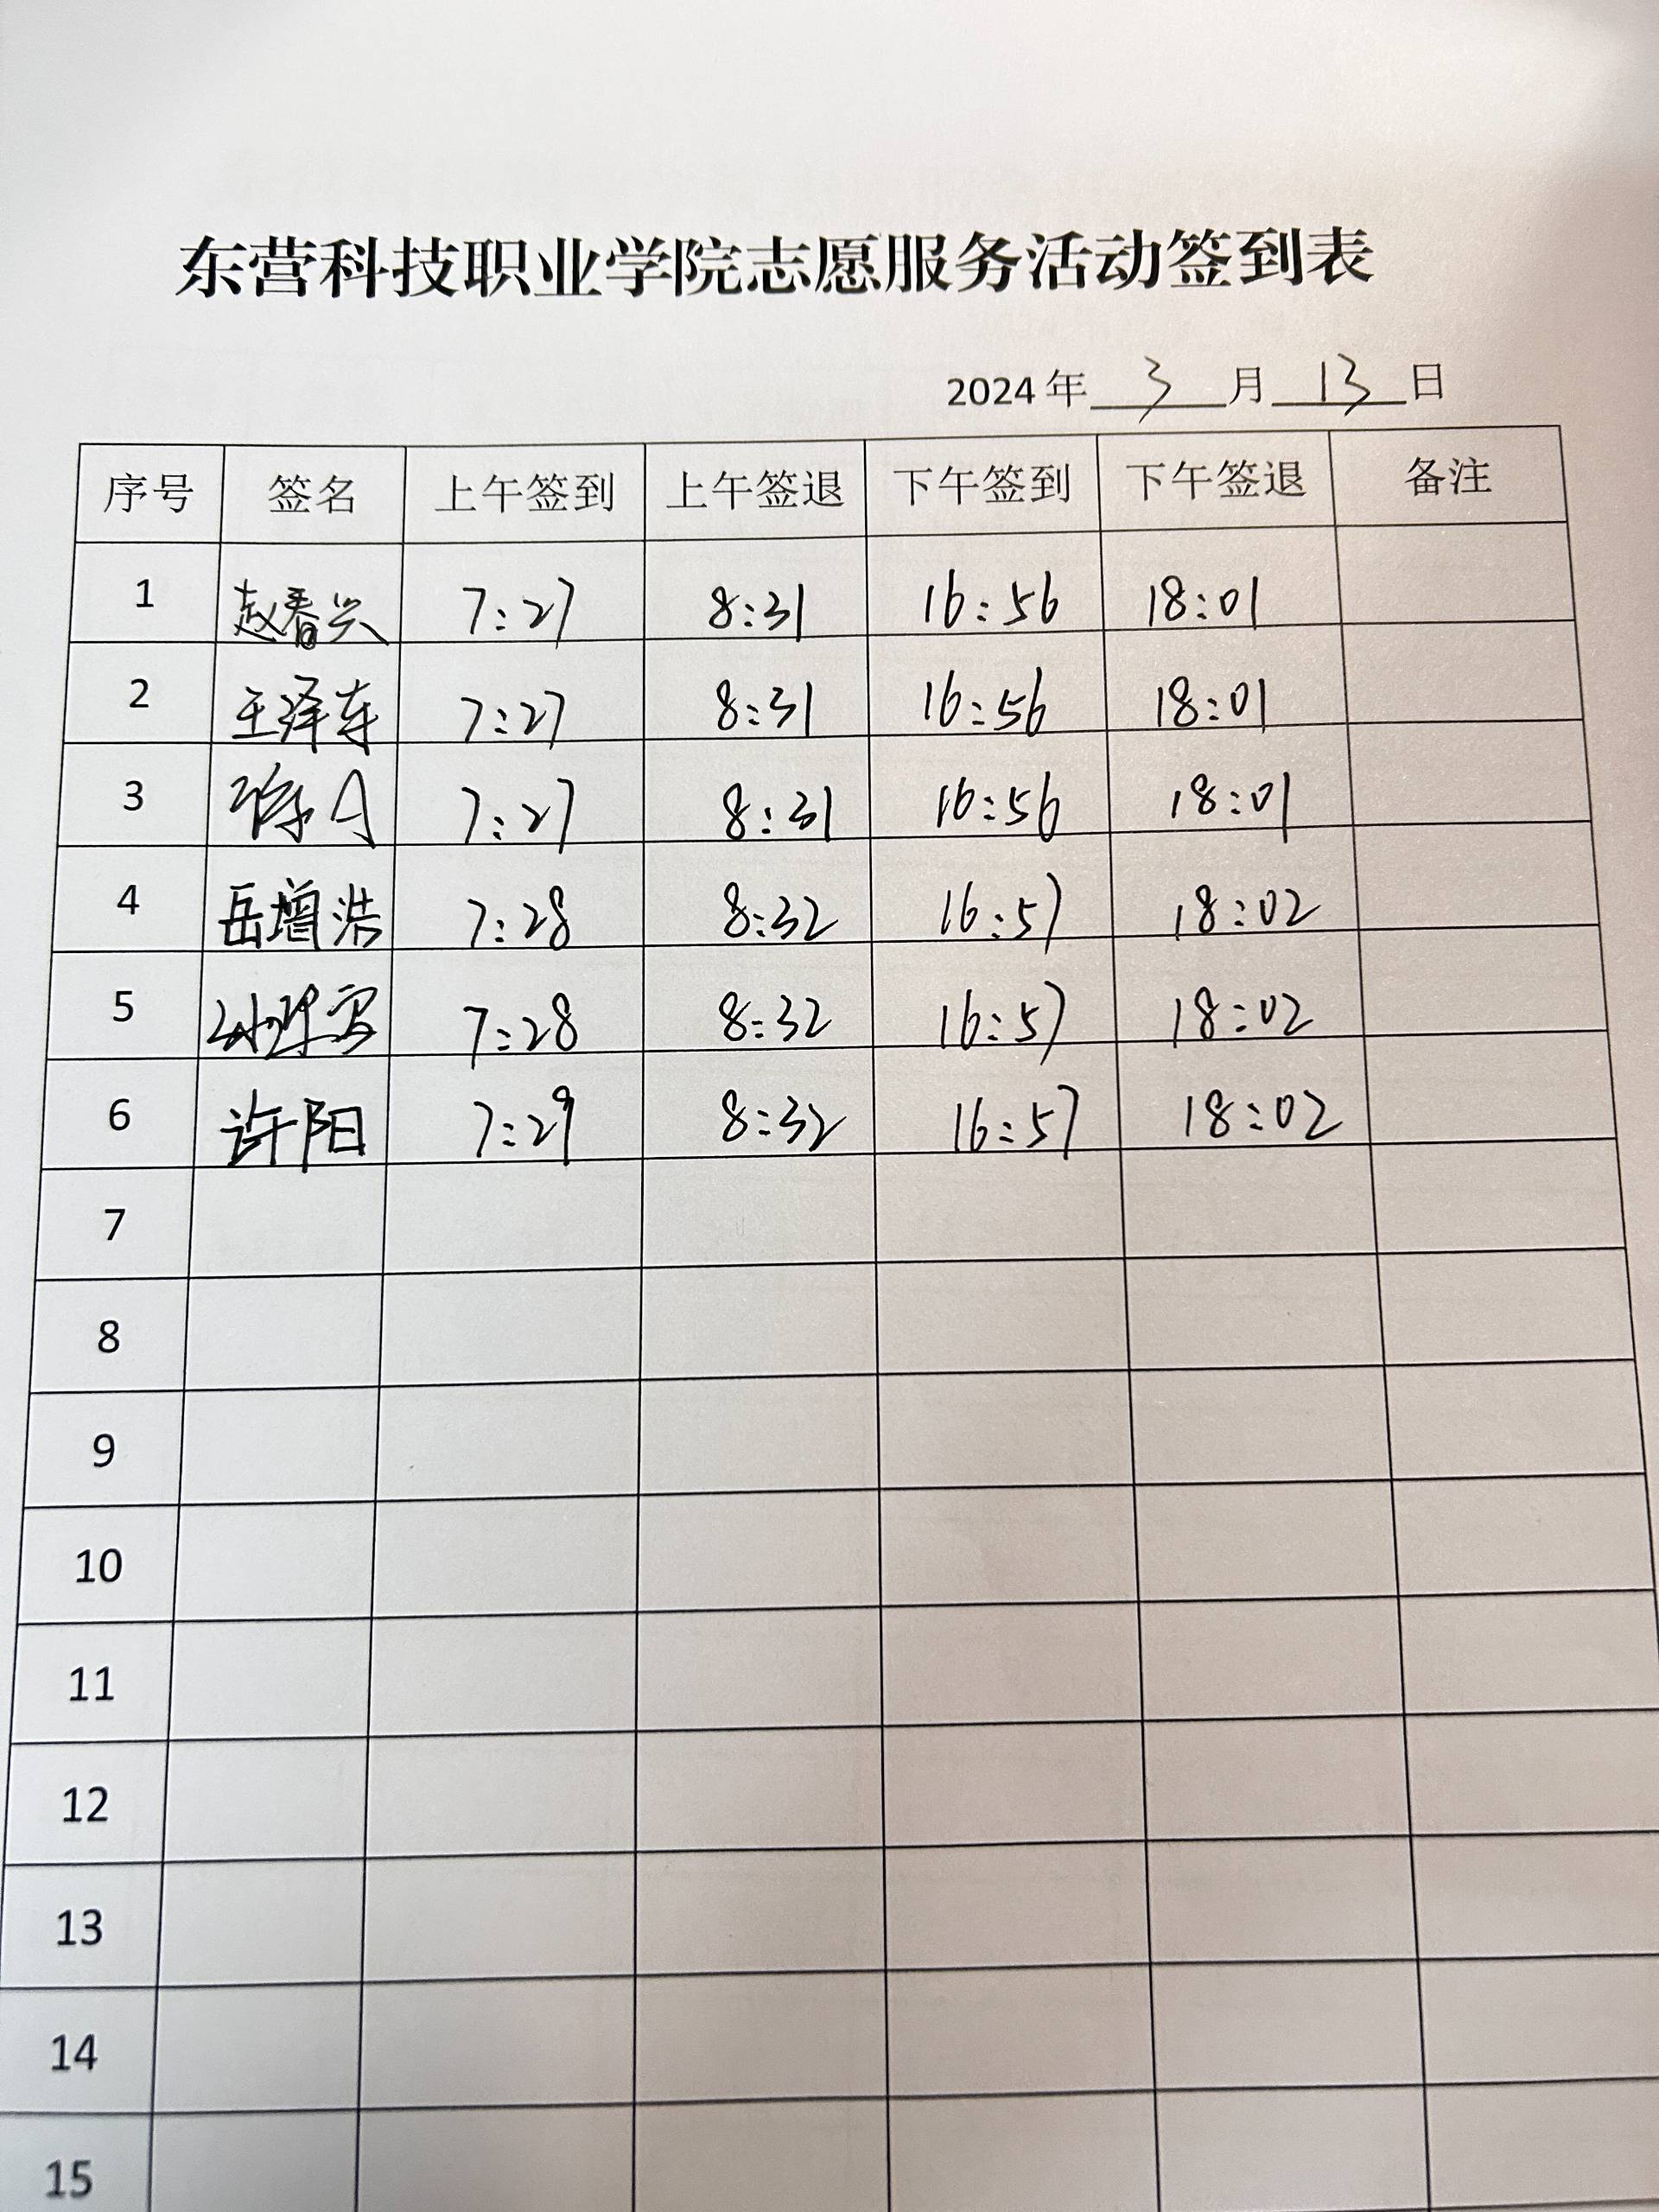 东营科技职业学院志愿服务活动签到表
2024年 3 月 13 日
序号 签名 上午签到 上午签退 下午签到 下午签退 备注
1 赵春兴 7:27 8:31 16:56 18:01
2 王泽东 7:27 8:31 16:56 18:01
3 7:27 8:31 16:56 18:01
4 岳增浩 7:28 8:32 16:57 18:02
5 7:28 8:32 16:57 18:02
6 许阳 7:29 8:32 16:57 18:02
7
8
9
10
11
12
13
14
15